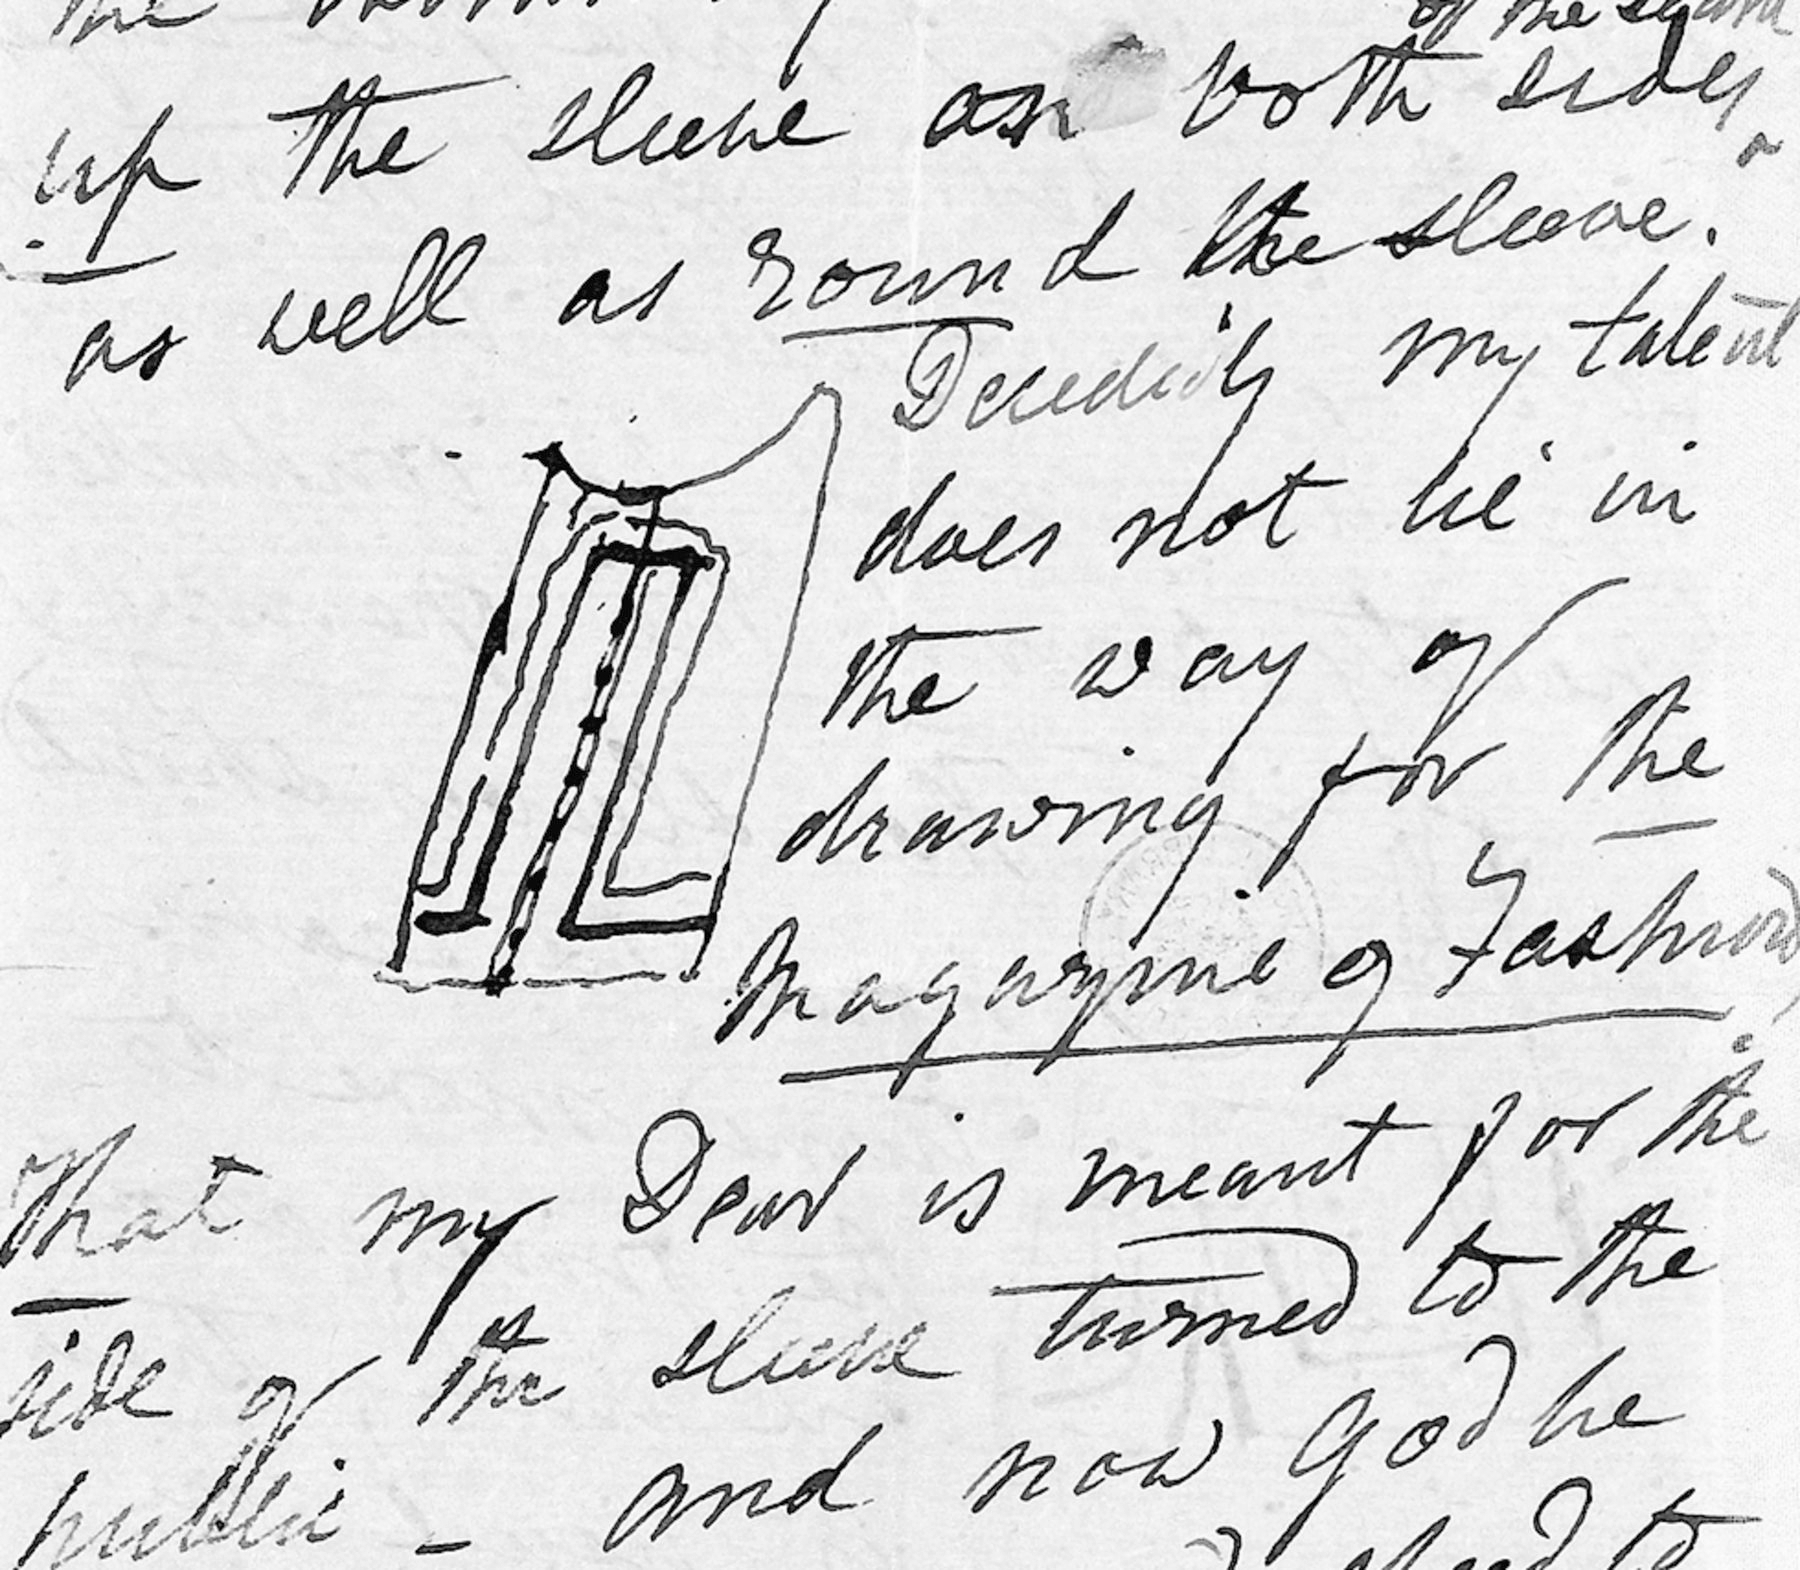 the
of the
up the sleeve on both sides
as well as round the sleeve.
Decidedly my talent
does not lie in
the way of
drawing for the
Magazine of Fashion,
That my Dear is meant for the
side of the sleeve turned to the
public - and now God be
to